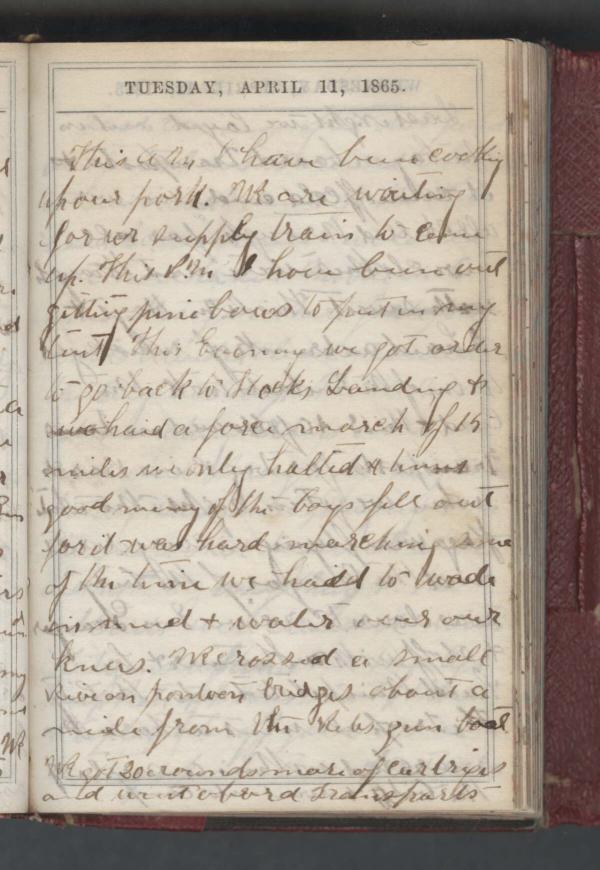 TUESDAY, APRIL 11, 1865.
This A M I have been cooking
up our pork. We are waiting
for ur supply train to come
up. This P.M I have been out
getting pine bows to put in my
tent This Evening we got order
to go back to Stocks Landing &
we haid a force march of 15
miles we only halted 2 times
good meny of the boys fell out
for it was hard marching some
of the time we haid to wade
in mud & water over our
knees. We crossed a small
river on pontoon bridges about a
mile from the Rebs gun boat
We got 20 rounds more of cartriges
and went abord transports